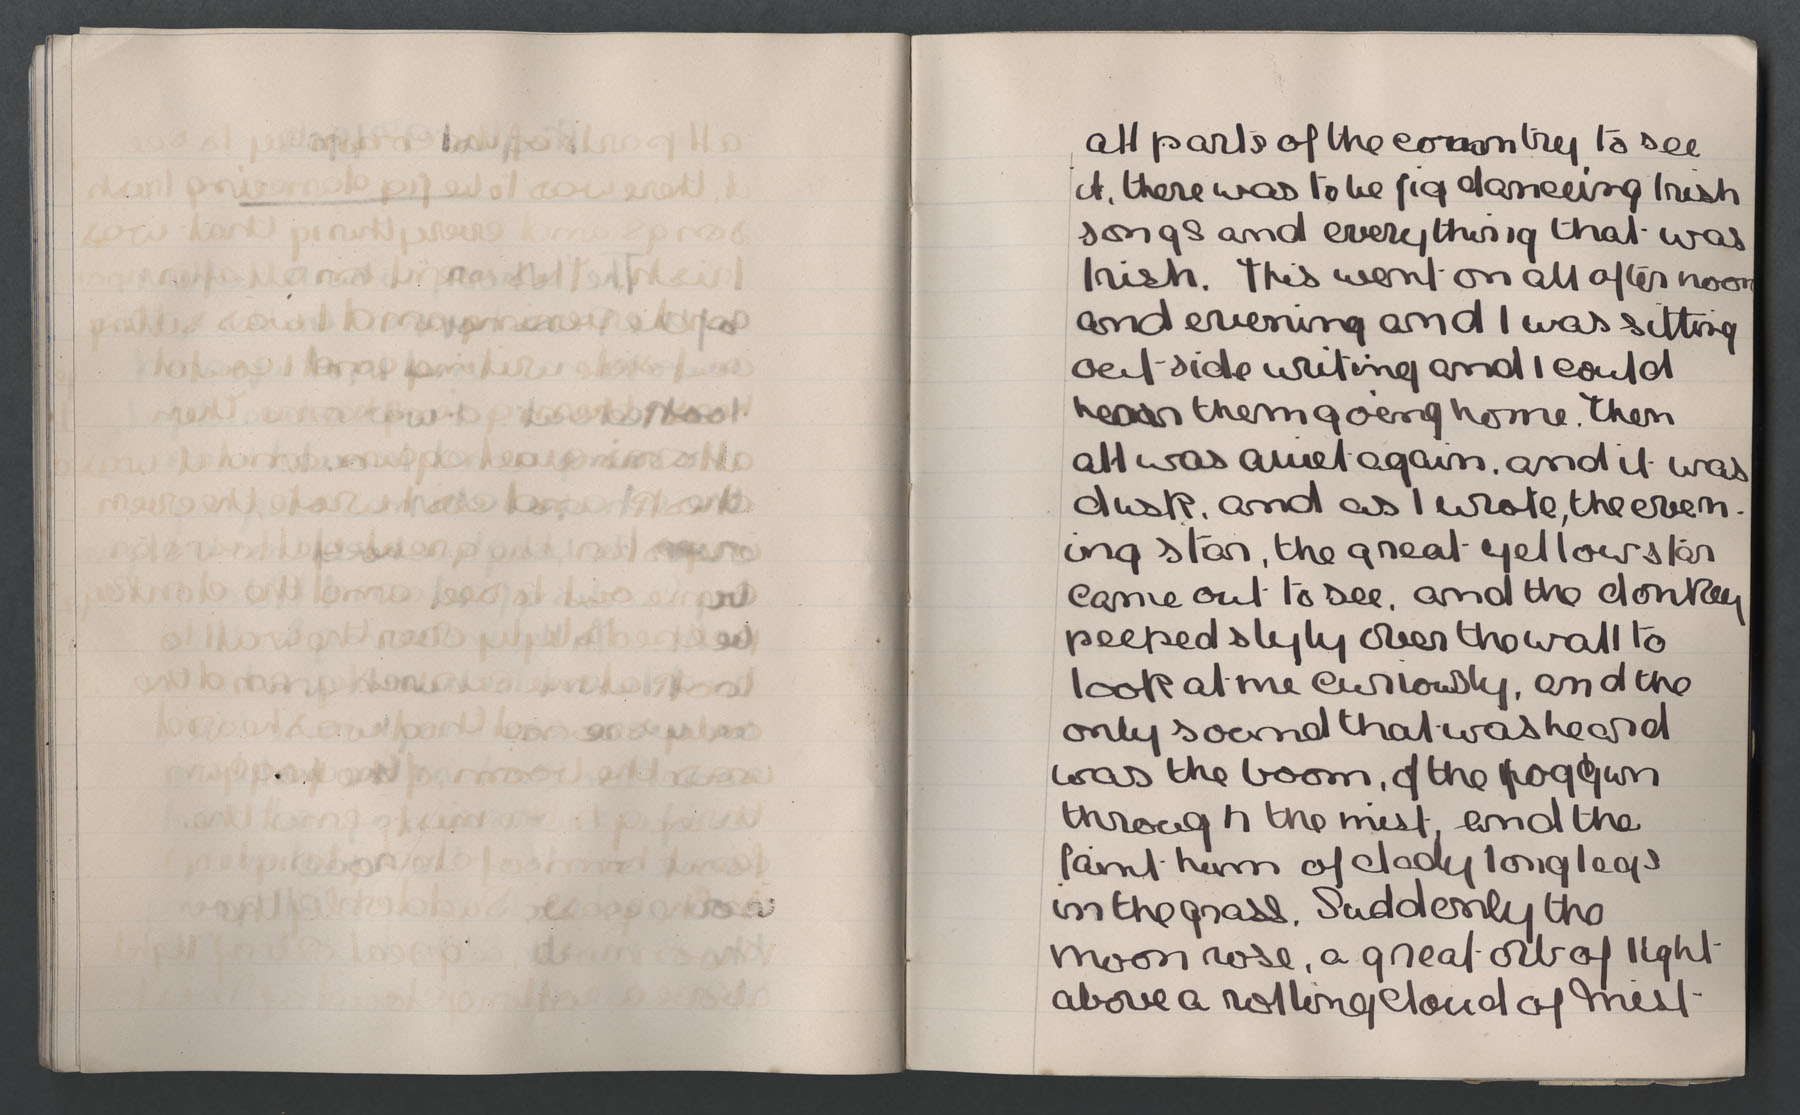 all parts of the country, to see
it, there was to be jig danceing Irish
songs and everything that was
Irish. This went on all after noon
and evening and I was sitting
out side writing and I could
hear them going home. Then
all was quiet again, and it was
dusk, and as I wrote, the even-
ing star, the great yellow star
came out to see, and the donkey
peeped slyly over the wall to
look at me curiously, and the
only sound that was heard
was the boom, of the fog gun
through the mist, and the
faint hum of dady long legs
in the grass. Suddenly the
moon rose, a great orb of light
above a rolling cloud of mist